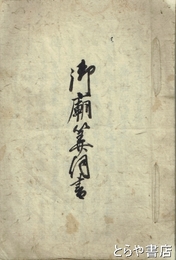 御廟算用書
とらや書店